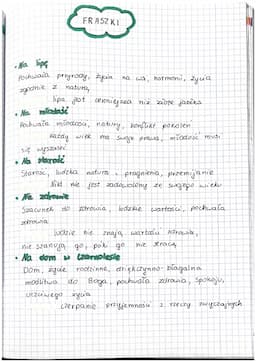 FRASZKI
• Na lipę
Pochwała przyrody, życia na wsi, harmonii, życia
zgodnie z naturą,
lipa jest cenniejsza niż złote jabłka
• Na młodość
Pochwała młodości, natury, konflikt pokoleń
Każdy wiek ma swoje prawa, młodość musi
się wyszaleć
• Na starość
Starość, ludzka natura, pragnienia, przemijanie
Nikt nie jest zadowolony ze swojego wieku
• Na zdrowie
Szacunek do zdrowia, ludzkie wartości, pochwała
zdrowia
Ludzie nie znają wartości zdrowia,
nie szanują go, póki go nie stracą
• Na dom w Czarnolesie
Dom, życie rodzinne, dziękczynno-błagalna
modlitwa do Boga, pochwała zdrowia, spokoju,
uczciwego życia
Czerpanie przyjemności z rzeczy zwyczajnych